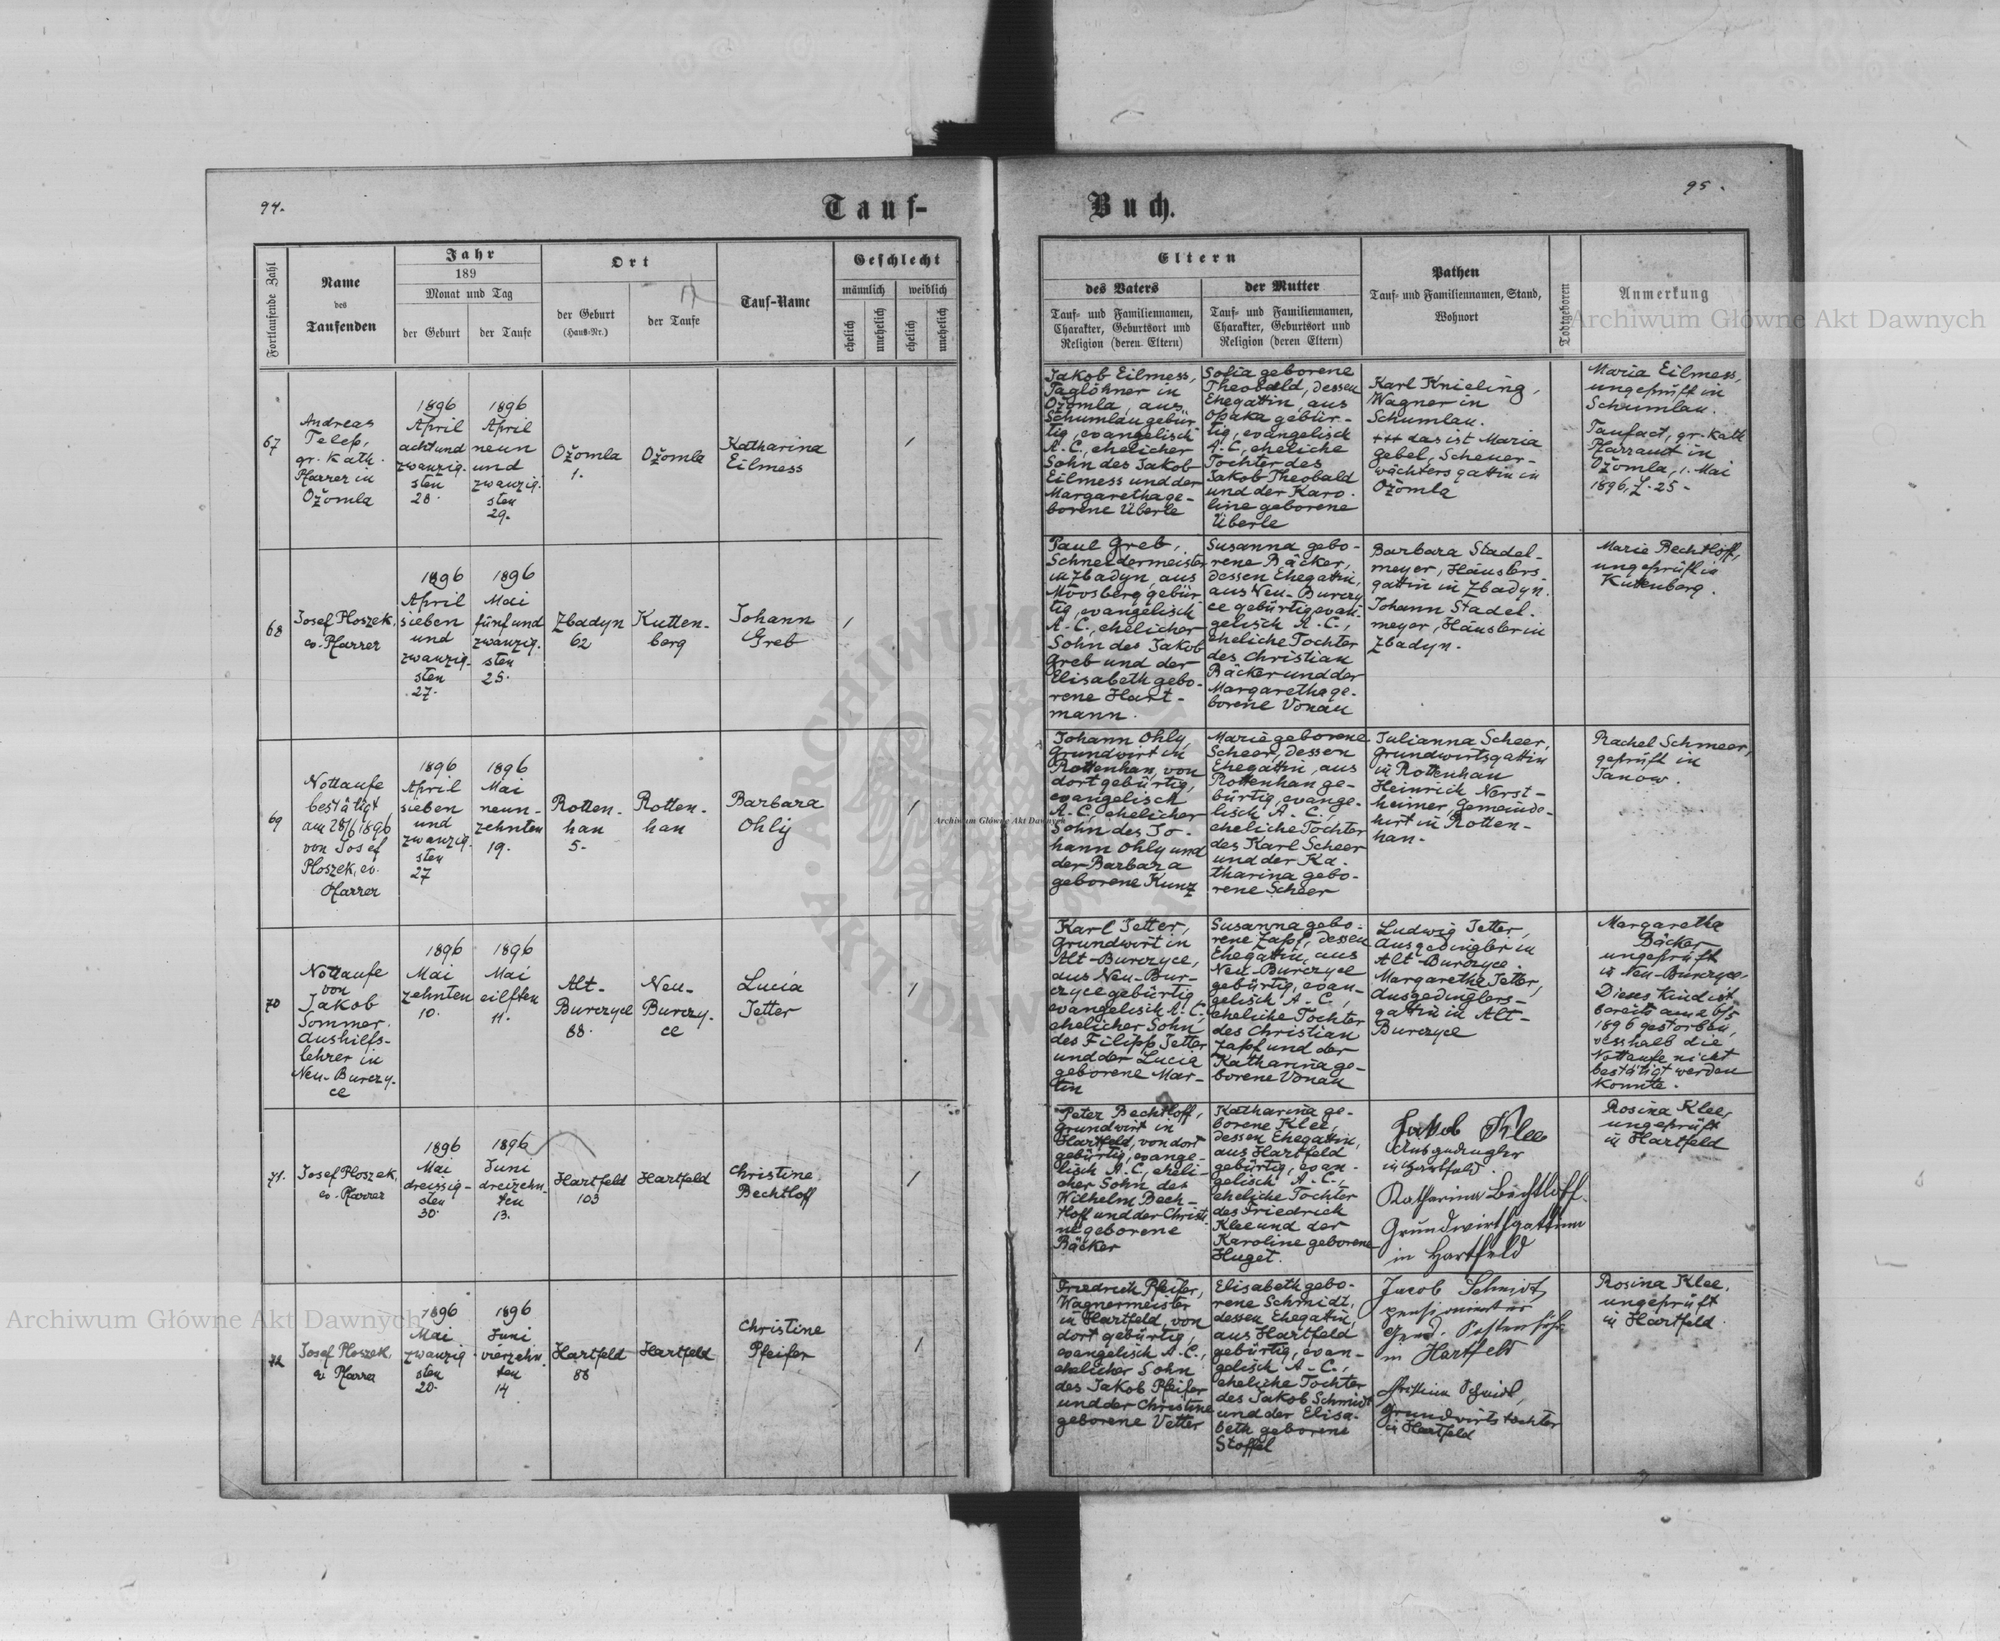 94.
Tauf-
Fortlaufende Zahl
Name
des
Taufenden
Jahr
189
Monat und Tag
der Geburt
der Taufe
Ort
der Geburt
(Haus-Nr.)
der Taufe
Tauf-Name
Geschlecht
männlich
weiblich
ehelich
unehelich
ehelich
unehelich
67
Andreas
Telep,
gr. Kath.
Pfarrer in
Ožomla
1896
April
acht und
zwanzig.
sten
28.
1896
April
neun
und
zwanzig.
sten
29.
Ožomla
1.
Ožomla
Katharina
Eilmess
/
68
Josef Ploszek,
ev. Pfarrer
1896
April
sieben
und
zwanzig.
sten
27.
1896
Mai
fünf und
zwanzig.
sten
25.
Zbadyn
62
Kutten-
berg
Johann
Greb
/
69
Nottaufe
bestätigt
am 28/6 1896
von Josef
Ploszek, ev.
Pfarrer
1896
April
sieben
und
zwanzig.
sten
27
1896
Mai
neun-
zehnten
19.
Rotten-
han
5.
Rotten-
han
Barbara
Ohly
/
70
Nottaufe
von
Jakob
Sommer,
Aushilfs-
lehrer in
Neu-Burczy-
ce
1896
Mai
zehnten
10.
1896
Mai
eilften
11.
Alt-
Burczyce
88.
Neu-
Burczy-
ce
Lucia
Jetter
/
71.
Josef Ploszek,
ev. Pfarrer
1896
Mai
dreissig-
sten
30.
1896
Juni
dreizehn-
ten
13.
Hartfeld
103
Hartfeld
Christine
Bechtloff
/
72
Josef Ploszek,
ev. Pfarrer
1896
Mai
zwanzig
sten
20.
1896
Juni
vierzehn.
ten
14
Hartfeld
88
Hartfeld
Christine
Pfeifer
/
95.
Buch.
Eltern
des Vaters
Tauf- und Familiennamen,
Charakter, Geburtsort und
Religion (deren Eltern)
der Mutter
Tauf- und Familiennamen,
Charakter, Geburtsort und
Religion (deren Eltern)
Pathen
Tauf- und Familiennamen, Stand,
Wohnort
Todtgeboren
Anmerkung
Jakob Eilmess,
Taglöhner in
Ožomla, aus
Schumlau gebür
tig, evangelisch
A.C., ehelicher
Sohn des Jakob
Eilmess und der
Margaretha ge-
borene Überle
Sofia geborene
Theobald, dessen
Ehegattin, aus
Opaka gebür-
tig, evangelisch
A.C., eheliche
Tochter des
Jakob Theobald
und der Karo.
line geborene
Überle
Karl Knieling,
Wagner in
Schumlau.
+++ das ist Maria
Gebel, Scheuer-
wächtersgattin in
Ožomla
Maria Eilmess,
ungeprüft in
Schumlau.
Taufact, gr. Kath
Pfarramt in
Ožomla, 1. Mai
1896, Z. 25.
Paul Greb,
Schneidermeister
in Zbadyn, aus
Moosberg gebür
tig, evangelisch
A.C., ehelicher
Sohn des Jakob
Greb und der
Elisabeth gebo-
rene Hart-
mann.
Susanna gebo-
rene Bäcker,
dessen Ehegattin,
aus Neu-Burczy
ce gebürtig, evan-
gelisch A.C.,
eheliche Tochter
des Christian
Bäcker und der
Margaretha ge-
borene Vonau
Barbara Stadel-
meyer, Häuslers
gattin in Zbadyn.
Johann Stadel.
meyer, Häusler in
Zbadyn.
Marie Bechtloff,
ungeprüft in
Kuttenberg.
Johann Ohly,
Grundwirt in
Rottenhan, von
dort gebürtig,
evangelisch
A.C., ehelicher
Sohn des Jo-
hann Ohly und
der Barbara
geborene Kunz
Marie geborene
Scheer, dessen
Ehegattin, aus
Rottenhan ge-
bürtig, evange-
lisch A.C.,
eheliche Tochter
des Karl Scheer
und der Ka-
tharina gebo-
rene Scheer
Julianna Scheer,
Grundwirtsgattin
in Rottenhan
Heinrich Nerst-
heimer, Gemeinde-
hirt in Rotten-
han.
Rachel Schmeer,
geprüft in
Janow.
Karl Jetter,
Grundwirt in
Alt-Burczyce,
aus Neu-Bur-
czyce gebürtig,
evangelisch A.C.,
ehelicher Sohn
des Filipp Jetter
und der Lucia
geborene Mar-
tin
Susanna gebo-
rene Zapf, dessen
Ehegattin, aus
Neu-Burczyce
gebürtig, evan-
gelisch A.C.,
eheliche Tochter
des Christian
Zapf und der
Katharina ge-
borene Vonau
Ludwig Jetter,
Ausgedingler in
Alt-Burczyce
Margaretha Jetter,
Ausgedinglers-
gattin in Alt-
Burczyce
Margaretha
Bäcker
ungeprüft
in Neu-Burczyce.
Dieses Kind ist
bereits am
1896 gestorben,
wesshalb die
Nottaufe nicht
bestätigt werden
konnte.
Peter Bechtloff,
Grundwirt in
Hartfeld, von dort
gebürtig, evange-
lisch A.C., eheli-
cher Sohn des
Wilhelm Bech-
tloff und der Christi
ne geborene
Bäcker
Katharina ge-
borene Klee,
dessen Ehegattin,
aus Hartfeld
gebürtig, evan-
gelisch A.C.,
eheliche Tochter
des Friedrich
Klee und der
Karoline geborene
Huget.
Jakob Klee
Ausgedingler
in Hartfeld.
Katharina Bechtloff.
Grundwirthsgattinn
in Hartfeld
Rosina Klee,
ungeprüft
in Hartfeld
Friedrich Pfeifer,
Wagnermeister
in Hartfeld, von
dort gebürtig,
evangelisch A.C.,
ehelicher Sohn
des Jakob Pfeifer
und der Christine
geborene Vetter
Elisabeth gebo-
rene Schmidt,
dessen Ehegattin,
aus Hartfeld
gebürtig, evan-
gelisch A.C.,
eheliche Tochter
des Jakob Schmidt
und der Elisa-
beth geborene
Stoffel
Jacob Schmidt
pensionierter
Gend.
in Hartfeld
Christine Schmidt,
Grundwirtstochter
in Hartfeld
Rosina Klee,
ungeprüft
in Hartfeld.
Archiwum Główne Akt Dawnych
Archiwum Główne Akt Dawnych
Archiwum Główne Akt Dawnych